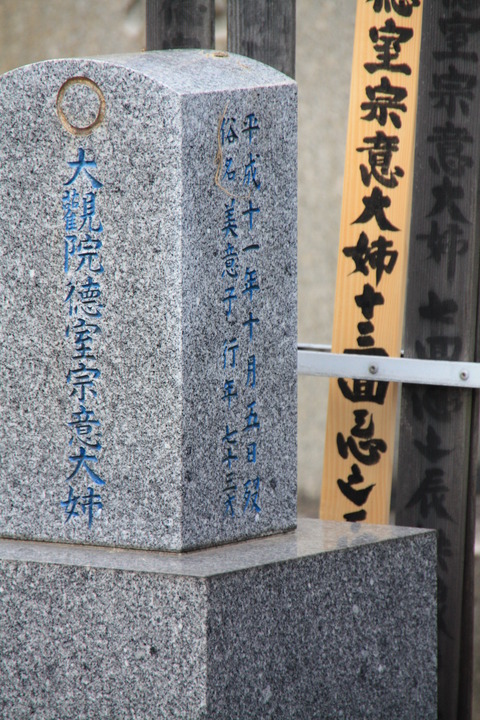 大觀院德室宗意大姉
平成十一年十月五日歿
俗名 美意子 行年 七十三才
德室宗意大姉十三回忌之
室宗意大姉 七回忌